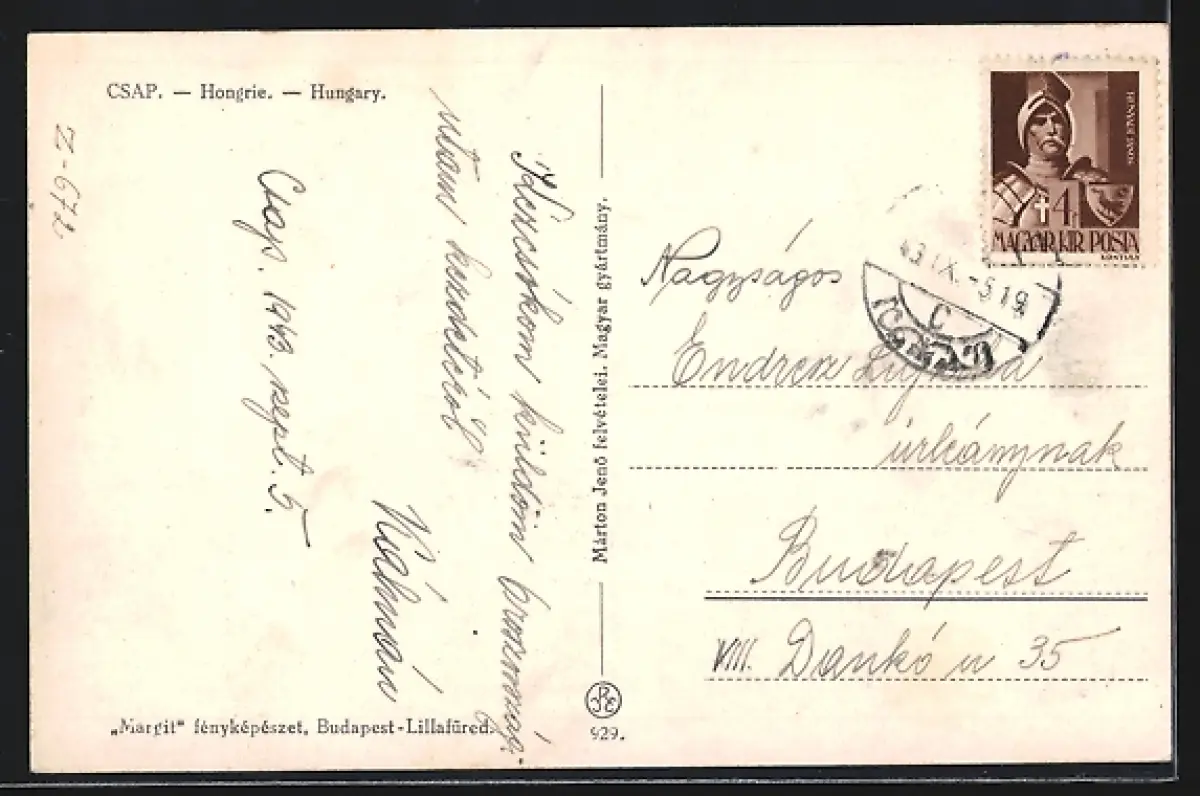 CSAP. — Hongrie. — Hungary.
Z-672
Csap. 1943. szept. 5.
Kézcsókom küldöm
utam kezdetéről
Kálmán
Márton Jenő felvételei. Magyar gyártmány.
929.
„Margit" fényképészet, Budapest-Lillafüred.
HUNYADI JÁNOS
4f
MAGYAR KIR POSTA
KONTULY
43 IX. -5 19
C
Nagyságos
Endresz
úrleánynak
Budapest
VIII. Dankó u 35